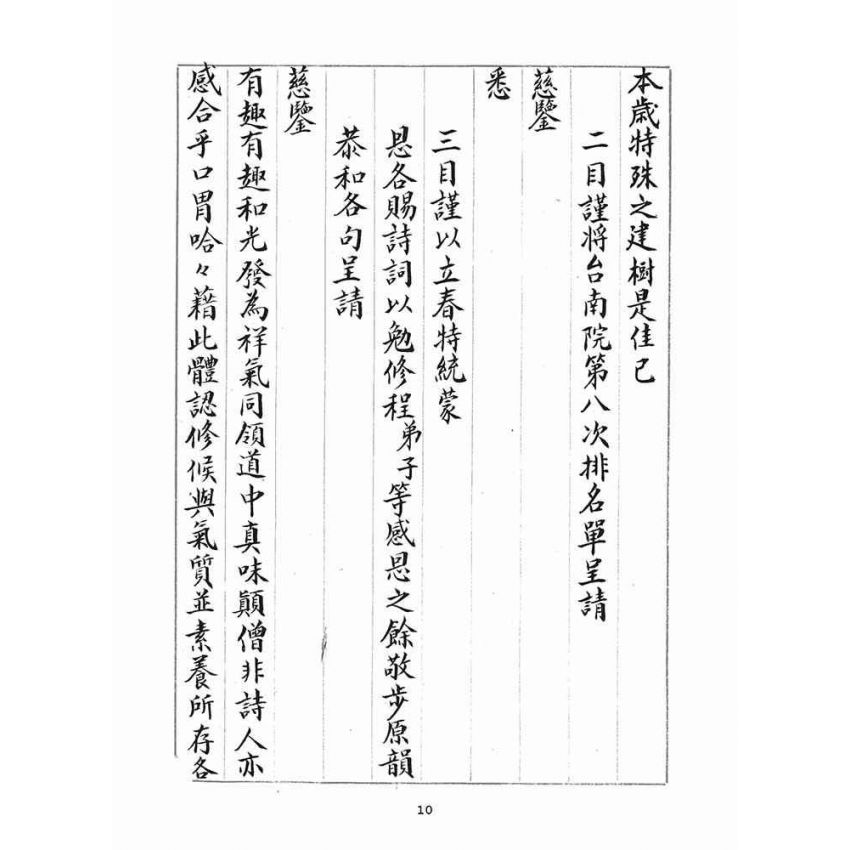 本歲特殊之建樹是佳已
二目謹將台南院第八次排名單呈請
慈鑒
悉
三目謹以立春特統蒙
恩各賜詩詞以勉修程弟子等感恩之餘敬步原韻
恭和各句呈請
慈鑒
有趣有趣和光發為祥氣同領道中真味顛僧非詩人亦
感合乎口胃哈々藉此體認修候與氣質並素養所存各
10